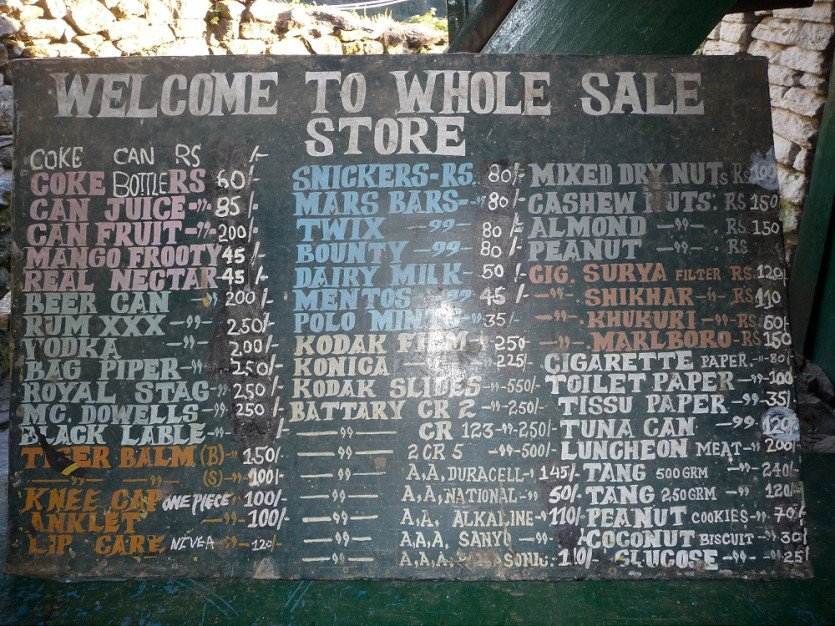 WELCOME TO WHOLE SALE
STORE
COKE CAN RS /-
COKE BOTTLE RS 60/-
CAN JUICE -"- 85/-
CAN FRUIT -"- 200/-
MANGO FROOTY 45/-
REAL NECTAR 45/-
BEER CAN -"- 200/-
RUM XXX -"- 250/-
VODKA -"- 200/-
BAG PIPER -"- 250/-
ROYAL STAG -"- 250/-
MC. DOWELLS -"- 250/-
BLACK LABLE -"-
TIGER BALM (B) -"- 150/-
-"- -"- (S) -"- 100/-
KNEE CAP ONE PIECE 100/-
ANKLET -"- 100/-
LIP CARE NIVEA -"- 120/-
SNICKERS-RS. 80/-
MARS BARS -"- 80/-
TWIX -"- 80/-
BOUNTY -"- 80/-
DAIRY MILK- 50/-
MENTOS -"- 45/-
POLO MINTS -"- 35/-
KODAK FILM -"- 250-
KONICA -"- 225/-
KODAK SLIDES -550/-
BATTARY CR 2 -"-250/-
-"- CR 123 -"-250/-
-"- 2 CR 5 -"-500/-
-"- A.A. DURACELL-"- 145/-
-"- A.A. NATIONAL-"- 50/-
-"- A.A. ALKALINE-"- 110/-
-"- A.A.A. SANYO -"-
-"- A.A.A. SONIC
MIXED DRY NUTS RS 100
CASHEW NUTS: RS 150
ALMOND -"- RS 150
PEANUT -"- RS
CIG. SURYA FILTER RS. 120
-"- SHIKHAR -"- RS. 110
-"- KHUKURI -"- RS. 60/-
-"- MARLBORO -"- RS 150
CIGARETTE PAPER. -"- 80/-
TOILET PAPER -"- 100
TISSU PAPER -"- 35/-
TUNA CAN -"- 120
LUNCHEON MEAT -"- 200
TANG 500GRM -"- 240/-
TANG 250GRM -"- 120/-
PEANUT COOKIES -"- 70/-
COCONUT BISCUIT -"- 30/-
GLUCOSE -"- 25/-